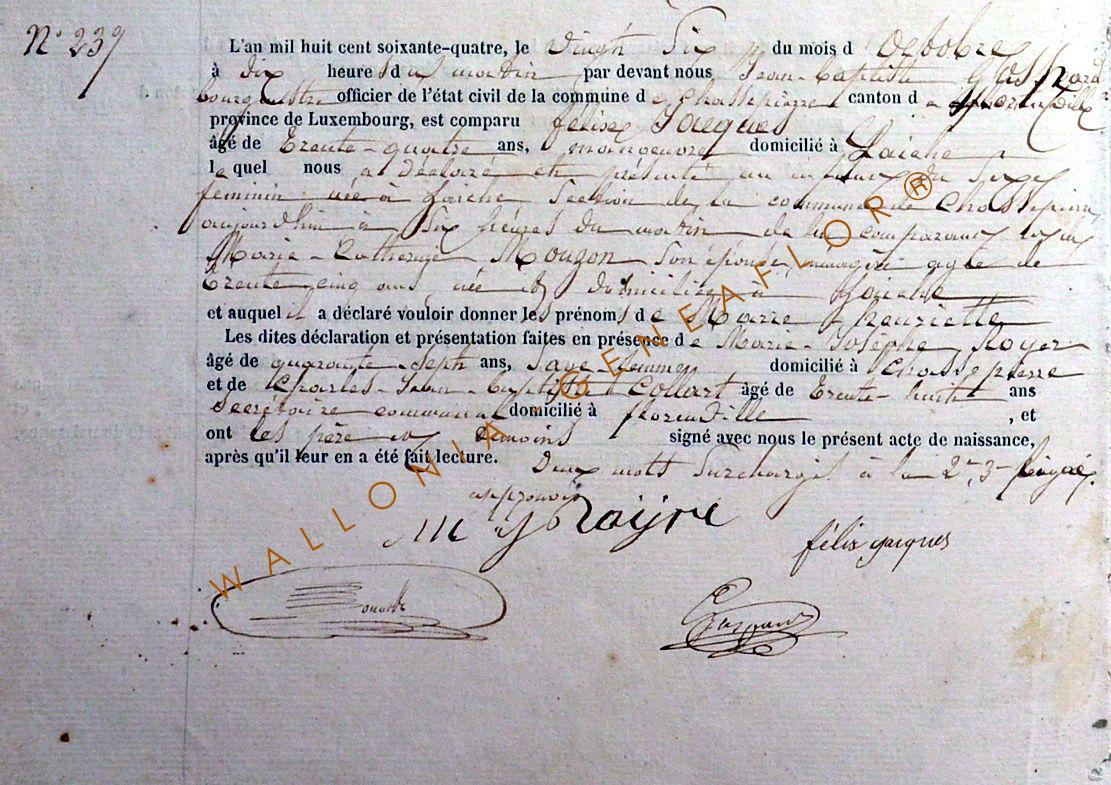 N° 239
L'an mil huit cent soixante-quatre, le vingt Six du mois d'Octobre
à dix heures du matin par devant nous Jean-Baptiste
bourgmestre officier de l'état civil de la commune de Chassepierre canton de florenville
province de Luxembourg, est comparu félix Jacques
âgé de trente-quatre ans, manoeuvre domicilié à Laiche
lequel nous a déclaré et présenté un enfant du Sexe
feminin née à Laiche Section de la commune de Chassepierre
aujourd'hui à Six heures du matin de lui comparant et de
Marie-Catherine Mougon Son épouse, ménagère agée de
trente cinq ans née et domiciliée à Laiche
et auquel il a déclaré vouloir donner les prénoms de Marie henriette
Les dites déclaration et présentation faites en présence de Marie-Josèphe Royer
âgé de quarante-Sept ans, Sage-femme domicilié à Chassepierre
et de Charles-Jean-Baptiste Collart âgé de trente-huit ans
Secrétaire communal domicilié à florenville , et
ont les père et témoins signé avec nous le présent acte de naissance,
après qu'il leur en a été fait lecture. Deux mots Surchargés à la 2e, 3e ligne
approuvés
M J Royre
félix jacques
WALLONIA - © GENEAFLOR ®